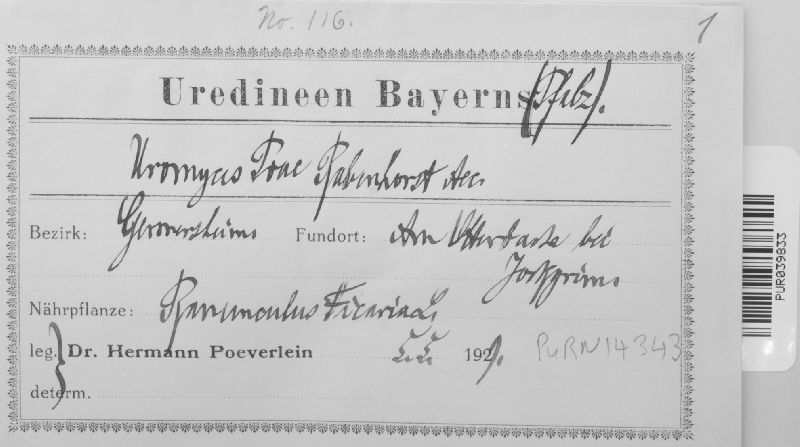 No. 116.
1
Uredineen Bayerns (Pfalz).
Uromyces Poae Rabenhorst Aec.
Bezirk: Germersheim. Fundort: Am Otterbache bei
Jockgrim.
Nährpflanze: Ranunculus Ficaria L.
leg. Dr. Hermann Poeverlein 192 PURN14343
determ.
PUR039833